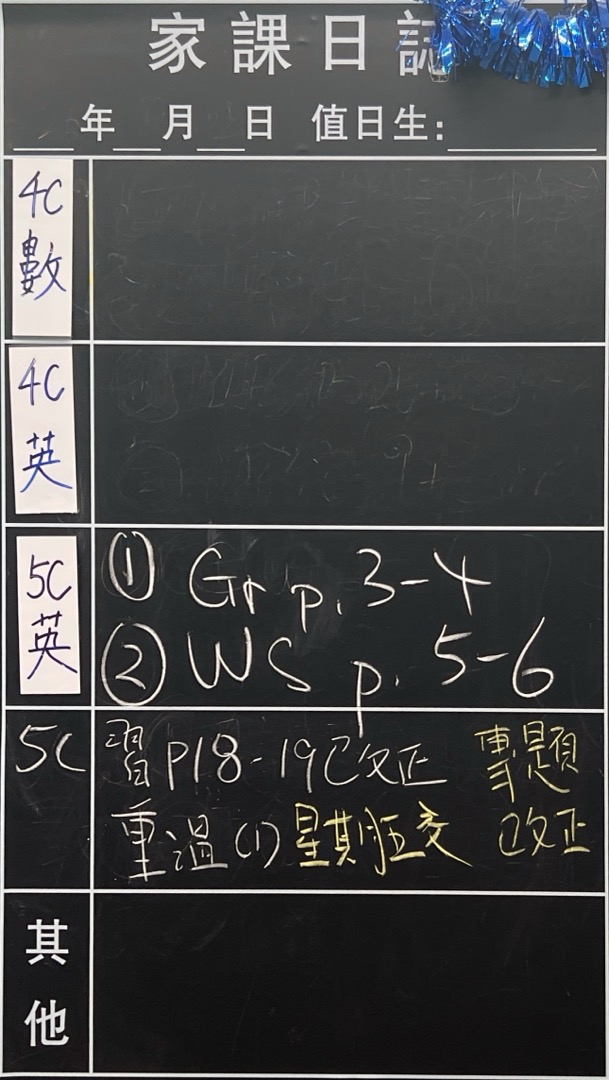 家課日誌
年 月 日 值日生:
4C
數
4C
英
5C
英
① Gr p. 3-4
② WS p. 5-6
5C
習 P18-19已改正 專題
重溫(1) 星期五交 已改正
其
他